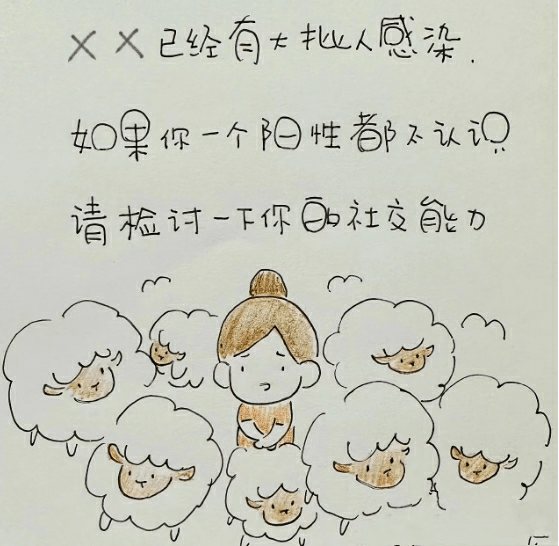 ×× 已经有大批人感染.
如果你一个阳性都不认识
请检讨一下你的社交能力